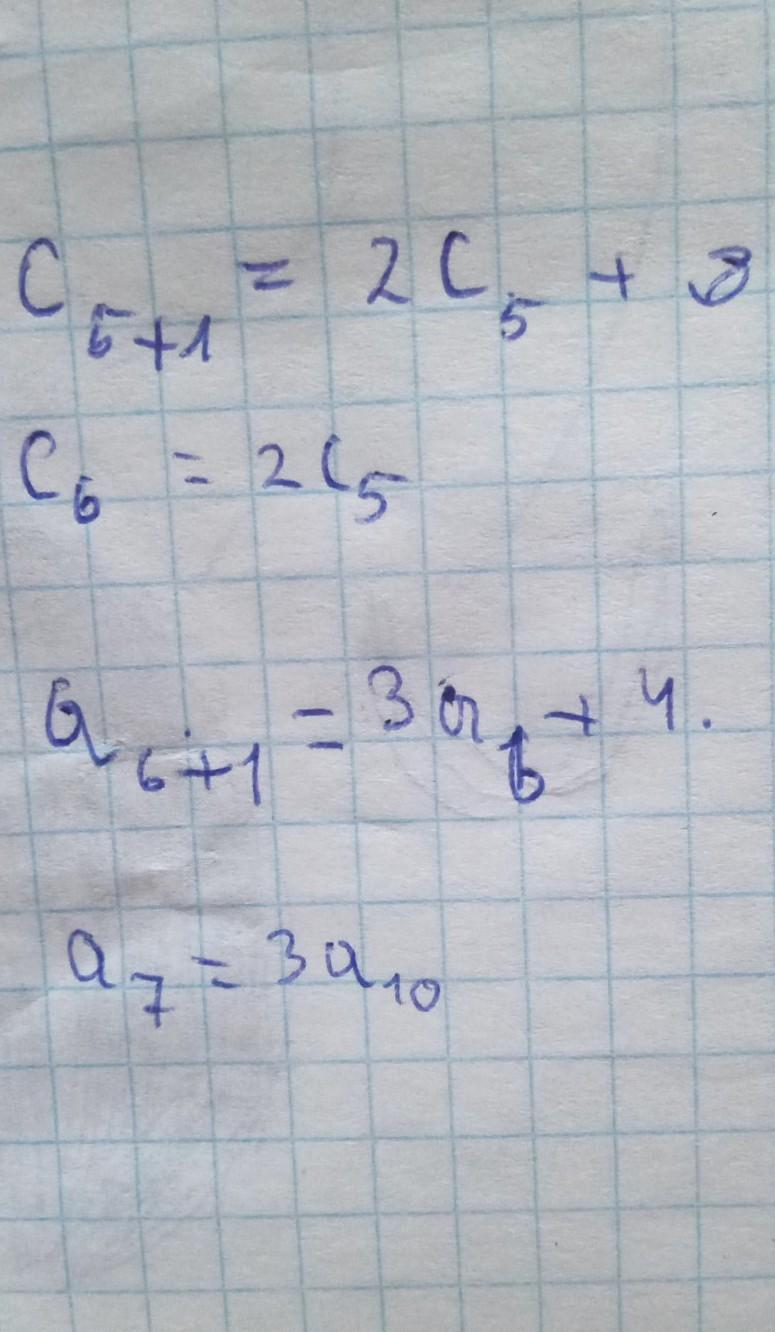 C₅₊₁ = 2C₅ +
C₆ = 2C₅
a₆₊₁ = 3a₆ + 4.
a₇ = 3a₁₀